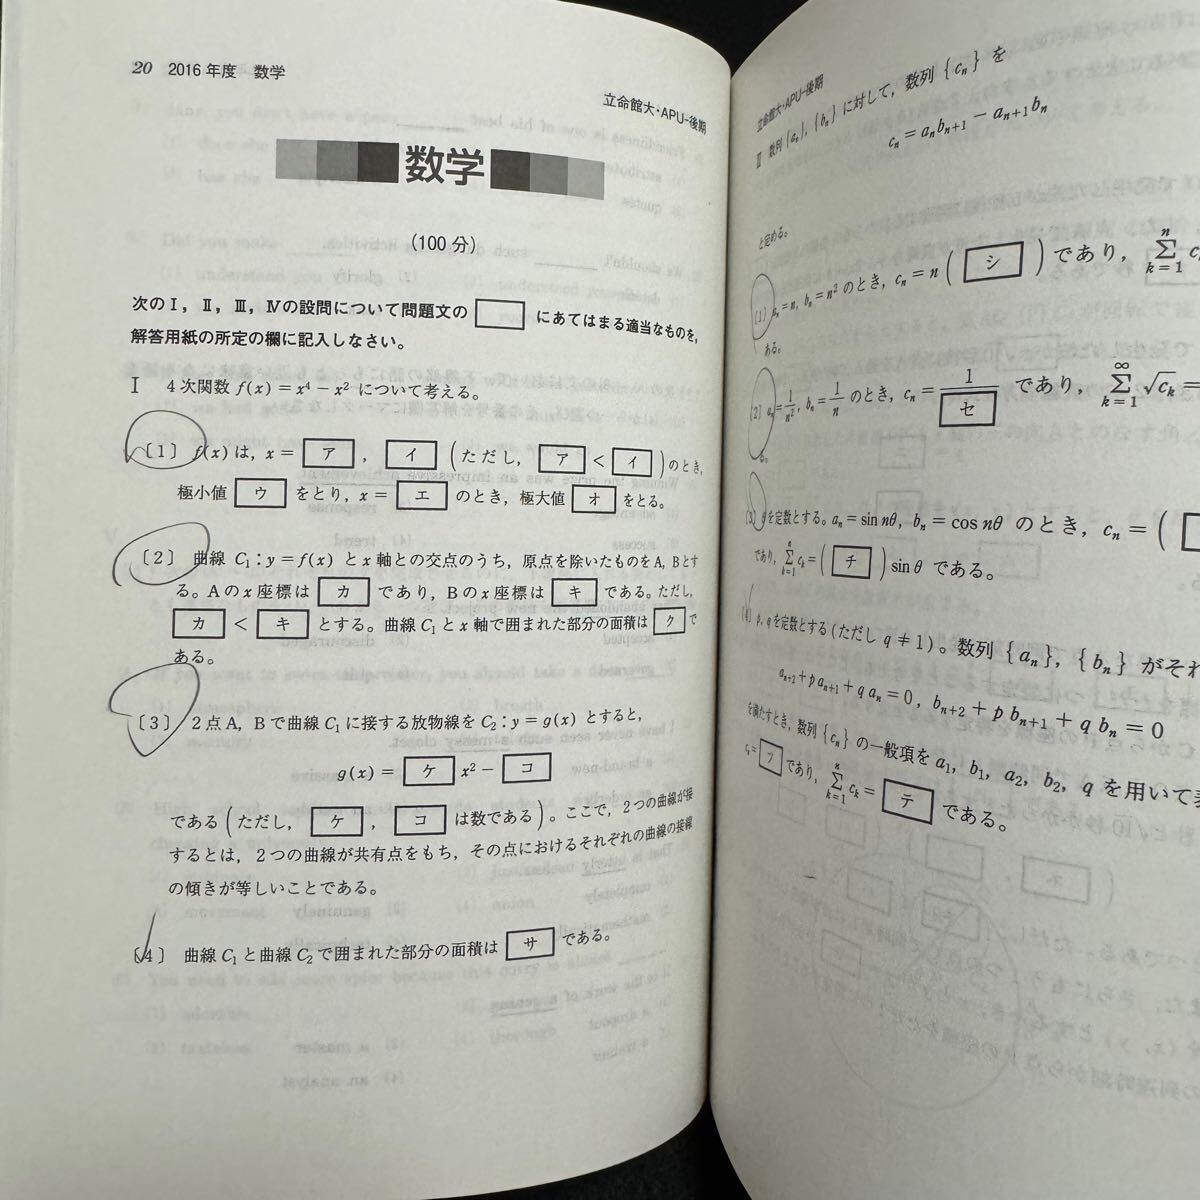 20 2016年度 数学
立命館大・APU-後期
数学
(100分)
次のⅠ, Ⅱ, Ⅲ, Ⅳの設問について問題文の□にあてはまる適当なものを,
解答用紙の所定の欄に記入しなさい。
Ⅰ 4次関数 f(x)=x⁴−x² について考える。
〔1〕 f(x)は, x=ア, イ (ただし, ア<イ)のとき,
極小値 ウ をとり, x=エ のとき, 極大値 オ をとる。
〔2〕 曲線 C₁:y=f(x) と x 軸との交点のうち, 原点を除いたものをA, Bとす
る。Aの x 座標は カ であり, Bの x 座標は キ である。ただし,
カ<キ とする。曲線 C₁ と x 軸で囲まれた部分の面積は ク で
ある。
〔3〕 2点A, Bで曲線 C₁ に接する放物線を C₂:y=g(x) とすると,
g(x)=ケ x²−コ
である(ただし, ケ, コ は数である)。ここで, 2つの曲線が接
するとは, 2つの曲線が共有点をもち, その点におけるそれぞれの曲線の接線
の傾きが等しいことである。
〔4〕 曲線 C₁ と曲線 C₂ で囲まれた部分の面積は サ である。
立命館大・APU-後期
Ⅱ 数列{aₙ}, {bₙ}に対して, 数列{cₙ}を
cₙ=aₙbₙ₊₁−aₙ₊₁bₙ
と定める。
〔1〕 aₙ=n, bₙ=n² のとき, cₙ=n(シ)であり, Σ[k=1,n] c
ある。
〔2〕 aₙ=1/n², bₙ=1/n のとき, cₙ=1/セ であり, Σ[k=1,∞] √cₖ=
る。
〔3〕 θを定数とする。aₙ=sin nθ, bₙ=cos nθ のとき, cₙ=(
であり, Σ[k=1,n] cₖ=(チ)sin θ である。
〔4〕 p, q を定数とする(ただし q≠1)。数列{aₙ}, {bₙ}がそれ
aₙ₊₂+p aₙ₊₁+q aₙ=0, bₙ₊₂+p bₙ₊₁+q bₙ=0
を満たすとき, 数列{cₙ}の一般項を a₁, b₁, a₂, b₂, q を用いて表
cₙ=ツ であり, Σ[k=1,n] cₖ=テ である。